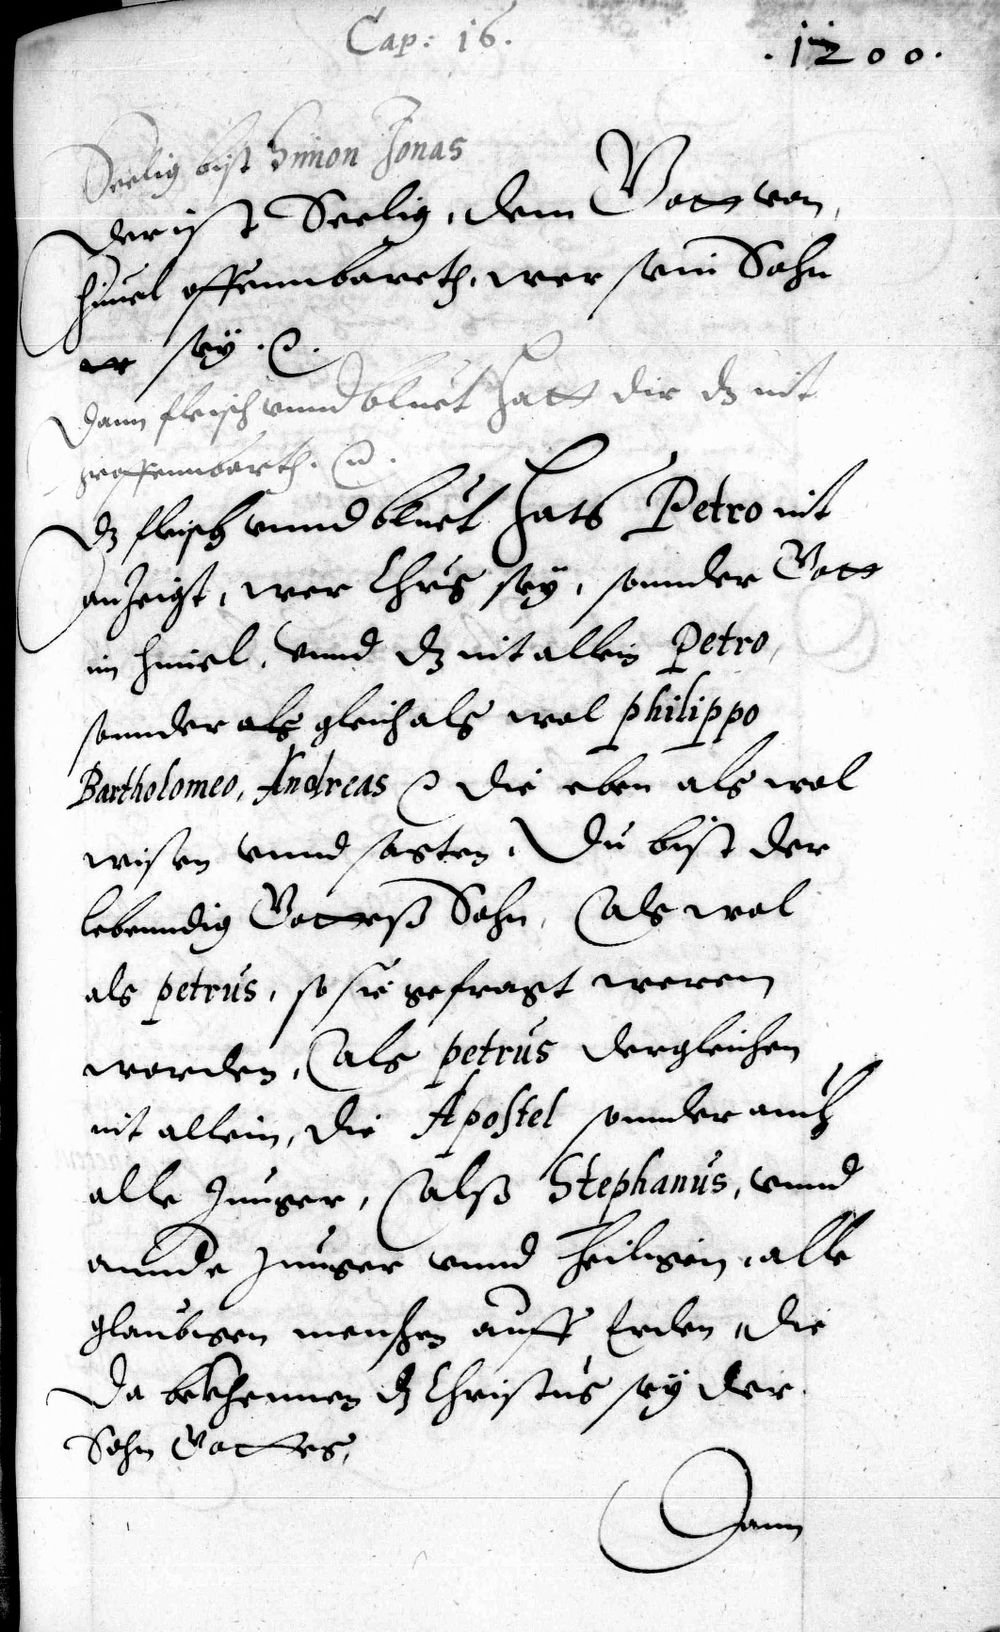 Cap: 16.
.1200.
Seelig bist Simon Jonas
Der ist Seelig, dem Gott von
himel offennbareth, wer sein Sohn
er seÿ. ꝛc.
Dann fleisch vnnd bluet hatt dir dz nit
geoffennbarth. ꝛc.
Dz fleisch vnnd bluet hats Petro nit
anzeigt, wer Chrs seÿ, sonnder Gott
im himel, vnnd dz nit allein Petro,
sonnder als gleich als wol philippo
Bartholomeo, Andreas ꝛc die eben als wol
wisen vnnd sagten, Du bist der
lebenndig Gotteß Sohn, als wol
als petrus, so sie gefragt weren
worden, als petrus dergleichen
nit allein, die Apostel sonnder auch
alle Junger, alß Stephanus, vnnd
annde Junger vnnd heiligen, alle
glaubigen menschen auff Erden, die
da bekhennen dz Christus seÿ der
Sohn Gottes,
Dann